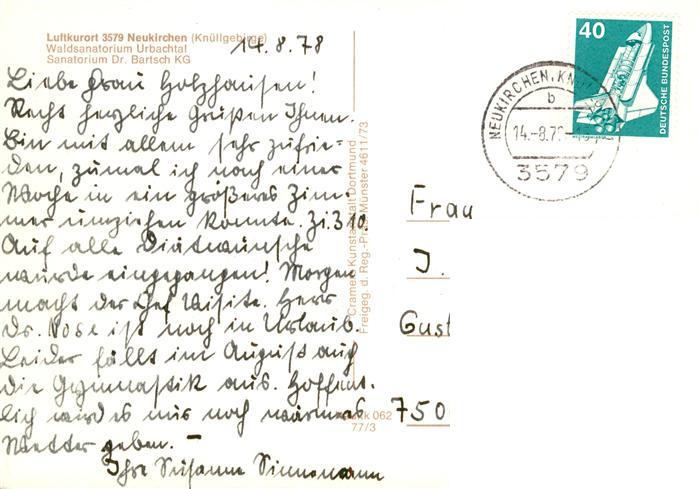 Luftkurort 3579 Neukirchen (Knüllgebirge)
Waldsanatorium Urbachtal
Sanatorium Dr. Bartsch KG
14.8.78
Liebe Frau Holzhausen!
Recht herzliche Grüßen Ihnen.
Bin mit allem sehr zufrie-
den, zumal ich nach einer
Woche in ein größeres Zim-
mer umziehen konnte. Zi. 310.
Auf alle Diätwünsche
wurde eingegangen! Morgen
macht der Chef Visite. Herr
Dr. Nose ist noch in Urlaub.
Leider fällt im August auch
die Gymnastik aus. Hoffent-
lich wird es mir noch wärmeres
Wetter geben. –
Ihre Susanne Sinnemann
Cramers Kunstanstalt Dortmund
Freigeg. d. Reg.-Präs. Münster 4611/73
062
77/3
40
DEUTSCHE BUNDESPOST
NEUKIRCHEN, KNÜLLGEB
b
14.-8.78
3579
Frau
J.
Gust
750